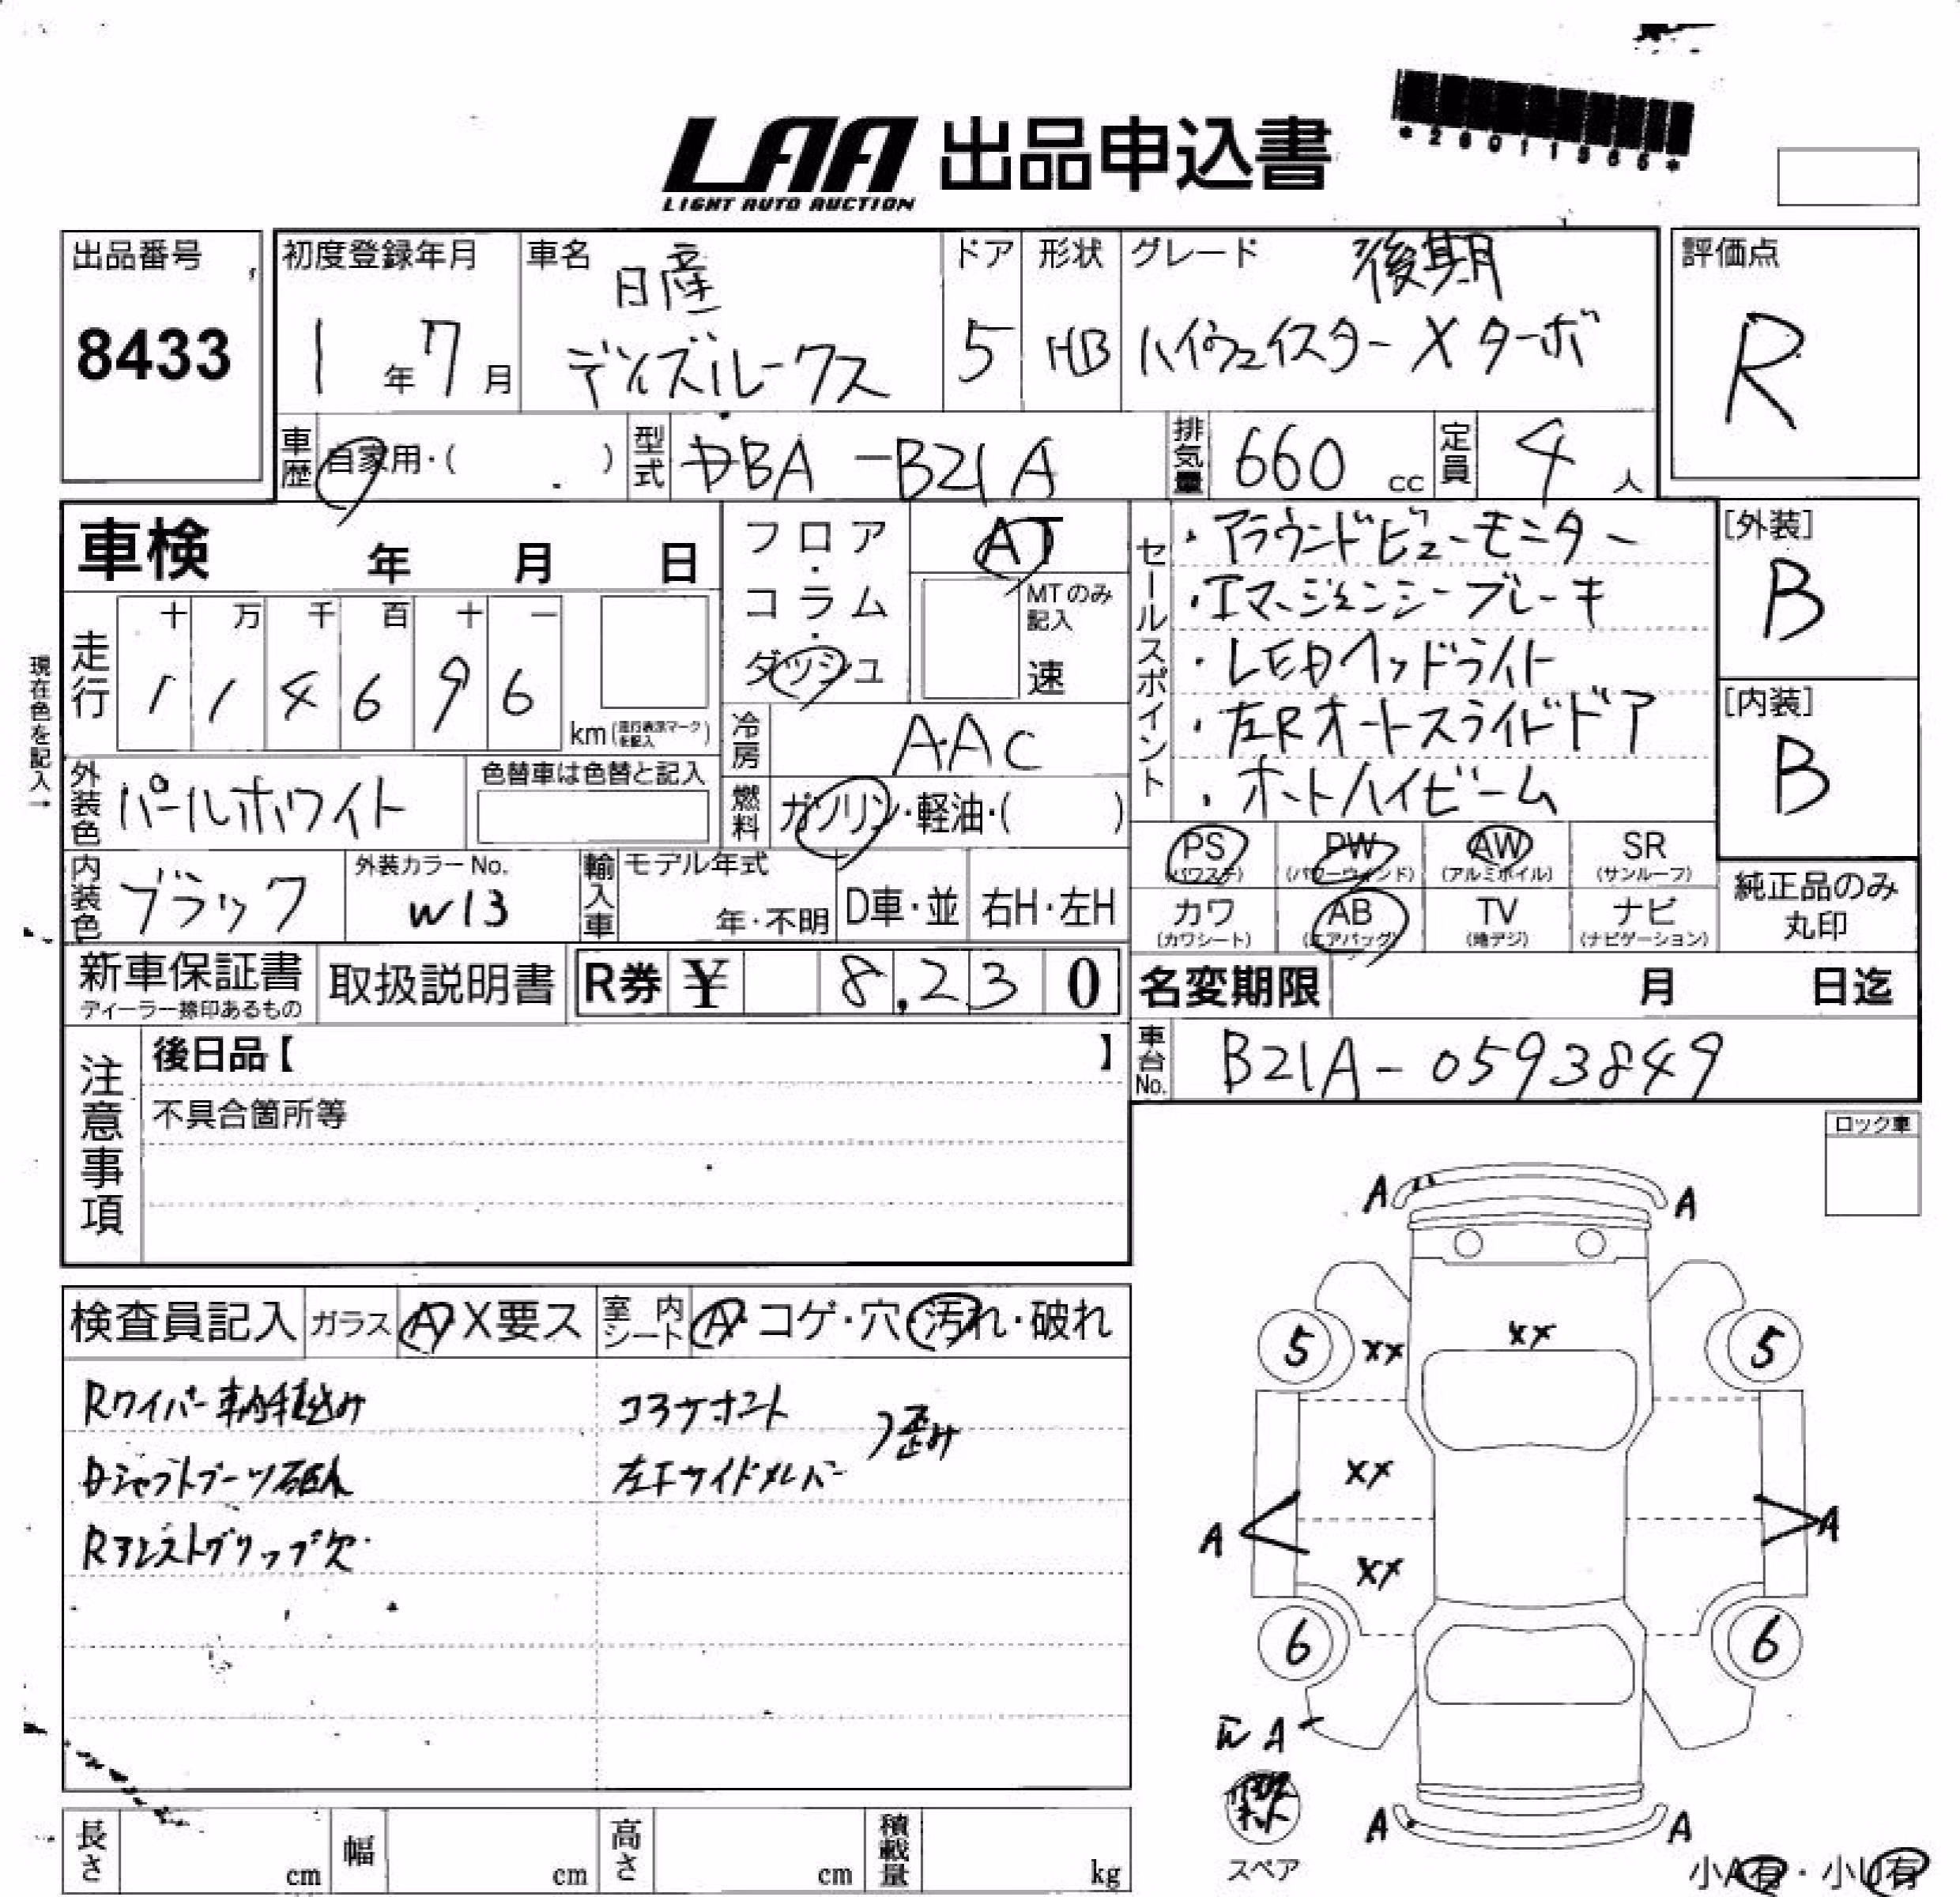 *26011565*
LAA 出品申込書
LIGHT AUTO AUCTION
出品番号
8433
初度登録年月
1年7月
車名
日産
デイズルークス
ドア
5
形状
HB
グレード
後期
ハイウェイスターXターボ
評価点
R
車歴
自家用・( )
型式
DBA-B21A
排気量
660 cc
定員
4人
車検 年 月 日
フロア・コラム・ダッシュ
AT
MTのみ記入
速
セールスポイント
・アラウンドビューモニター
・エマージェンシーブレーキ
・LEDヘッドライト
・左Rオートスライドドア
・オートハイビーム
[外装]
B
[内装]
B
現在色を記入→
走行
十 万 千 百 十 一
1 1 4 6 9 6
km(走行表示マークを記入)
冷房
AAC
外装色
パールホワイト
色替車は色替と記入
燃料
ガソリン・軽油・( )
PS
(パワステ)
PW
(パワーウインド)
AW
(アルミホイル)
SR
(サンルーフ)
カワ
(カワシート)
AB
(エアバッグ)
TV
(地デジ)
ナビ
(ナビゲーション)
純正品のみ
丸印
内装色
ブラック
外装カラーNo.
W13
輸入車
モデル年式
年・不明
D車・並
右H・左H
新車保証書
ディーラー捺印あるもの
取扱説明書
R券 ¥ 8,230
名変期限 月 日迄
車台No.
B21A-0593849
注意事項
後日品【 】
不具合箇所等
ロック車
検査員記入
ガラス
A X要ス
室内シート
A・コゲ・穴・汚れ・破れ
Rワイパー
コアサポート
歪み
Dシャフトブーツ破れ
左Fサイドメンバー
Rアシストグリップ欠
A A
XX
5 XX 5
XX
A A
XX
6 6
A
A A
スペア
小A有・小U有
長さ cm
幅 cm
高さ cm
積載量 kg